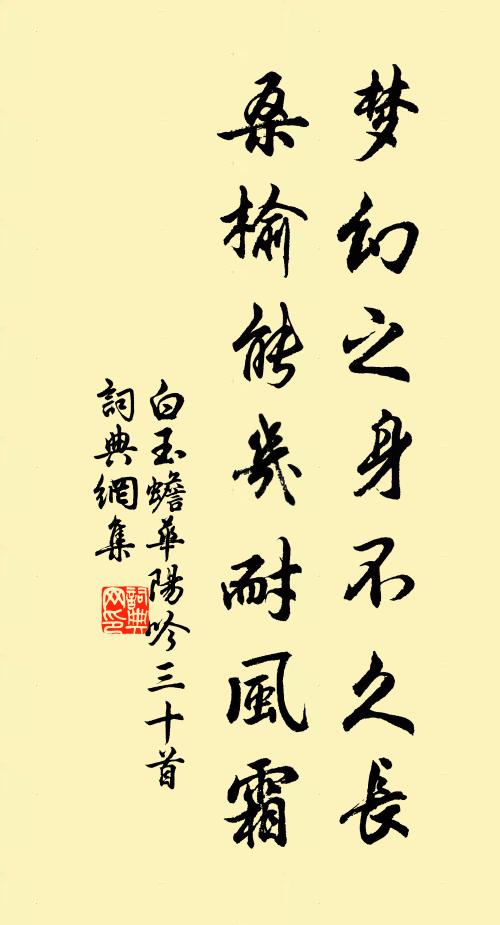 梦幻之身不久長
桑榆能幾耐風霜
白玉蟾華陽吟三十首
詞典網集
詞典网印